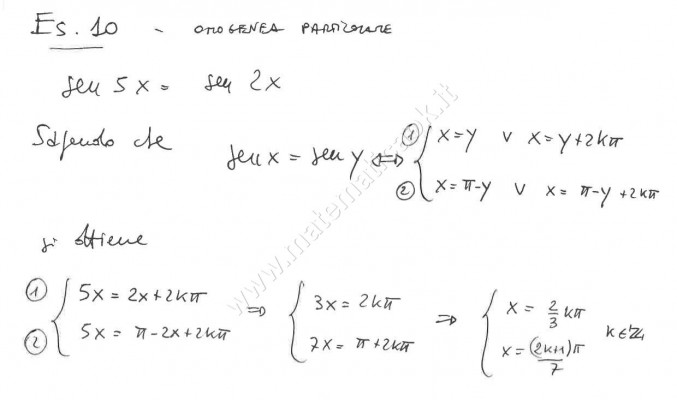 Es. 10 - OMOGENEA PARTICOLARE
sen 5x = sen 2x
Sapendo che sen x = sen y ⇔ { ① x = y ∨ x = y + 2kπ
② x = π - y ∨ x = π - y + 2kπ
si ottiene
① { 5x = 2x + 2kπ ⇒ { 3x = 2kπ ⇒ { x = 2/3 kπ
② 5x = π - 2x + 2kπ 7x = π + 2kπ x = (2k+1)π/7 k ∈ ℤ
www.matematicaok.it